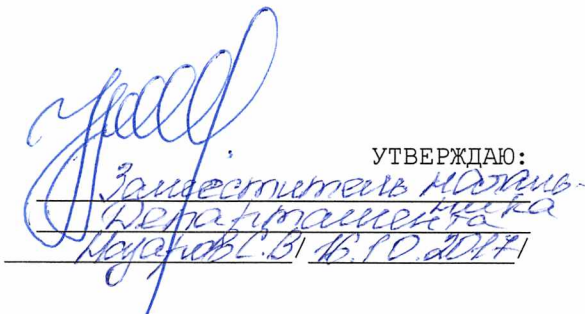 УТВЕРЖДАЮ:
Заместитель началь-
ника
Департамента
С.В/ 16.10.2017/